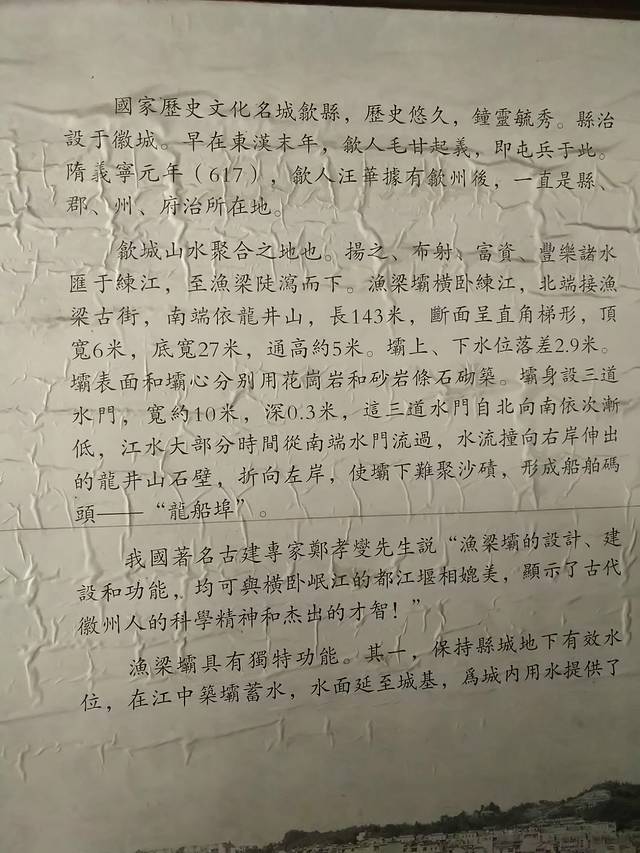 國家歷史文化名城歙縣，歷史悠久，鐘靈毓秀。縣治
設于徽城。早在東漢末年，歙人毛甘起義，即屯兵于此。
隋義寧元年（617），歙人汪華據有歙州後，一直是縣、
郡、州、府治所在地。
歙城山水聚合之地也。揚之、布射、富資、豐樂諸水
匯于練江，至漁梁陡瀉而下。漁梁壩橫卧練江，北端接漁
梁古街，南端依龍井山，長143米，斷面呈直角梯形，頂
寬6米，底寬27米，通高約5米。壩上、下水位落差2.9米。
壩表面和壩心分別用花崗岩和砂岩條石砌築。壩身設三道
水門，寬約10米，深0.3米，這三道水門自北向南依次漸
低，江水大部分時間從南端水門流過，水流撞向右岸伸出
的龍井山石壁，折向左岸，使壩下難聚沙磧，形成船舶碼
頭——“龍船埠”。
我國著名古建專家鄭孝燮先生説“漁梁壩的設計、建
設和功能，均可與橫卧岷江的都江堰相媲美，顯示了古代
徽州人的科學精神和杰出的才智！”
漁梁壩具有獨特功能。其一，保持縣城地下有效水
位，在江中築壩蓄水，水面延至城基，爲城内用水提供了